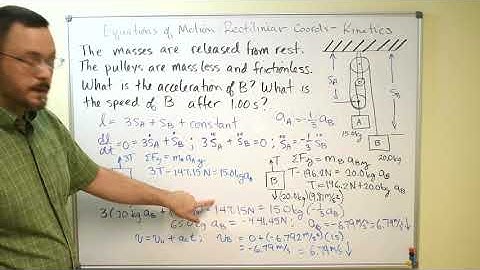 Equations of Motion Rectilinear Coords - Kinetics
The masses are released from rest.
The pulleys are massless and frictionless.
What is the acceleration of B? What is
the speed of B after 1.00s?
l = 3SA + SB + constant
aA = -1/3 aB
dl/dt = 0 = 3ṠA + ṠB ; 3S̈A + S̈B = 0 ; S̈A = -1/3 S̈B
SA
SB
A
15.0kg
B
20.0kg
3T
ΣFy = mA aAy
3T - 147.15N = 15.0kg aA
T
B
(20.0kg)(9.81m/s²)
ΣFy = mB aBy
T - 196.2N = 20.0kg aB
T = 196.2N + 20.0kg aB
- 147.15N = 15.0kg (-1/3 aB)
65.0kg aB = -441.45N ; aB = -6.79m/s² = 6.79m/s² ↓
v = v0 + act ; vB = 0 + (-6.792m/s²)(1s)
= -6.79m/s = 6.79m/s ↓